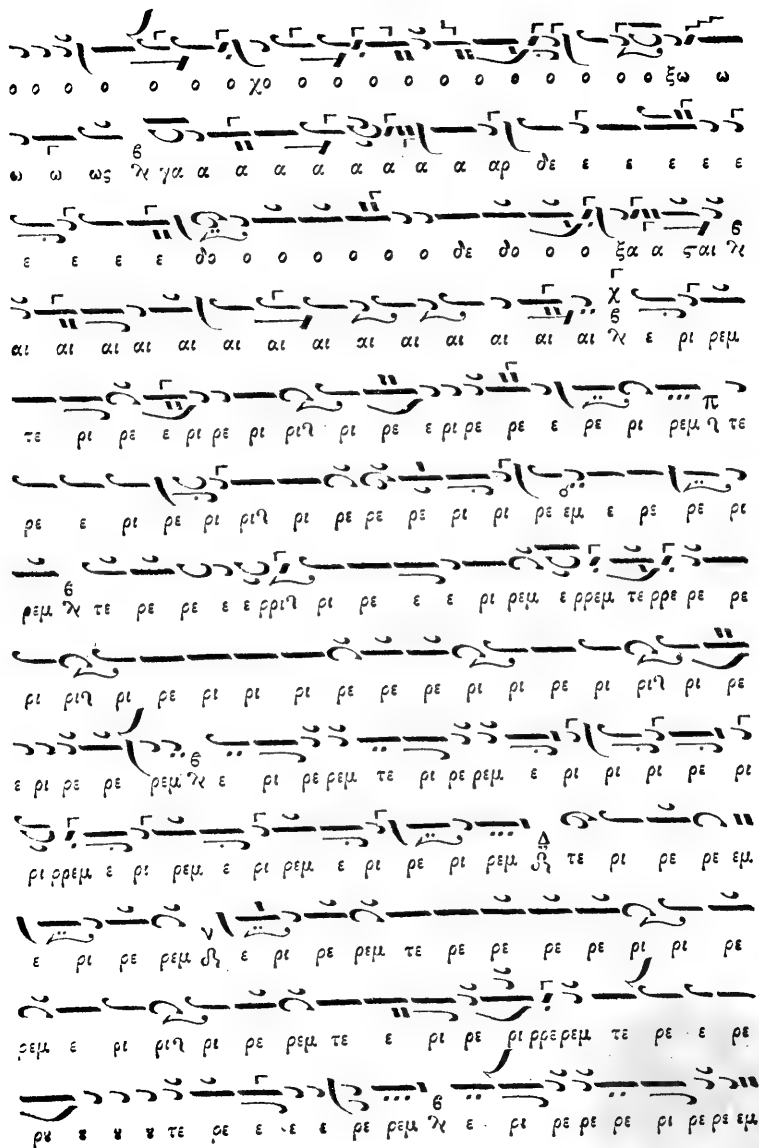 ο ο ο ο ο ο ο χο ο ο ο ο ο ο ο ο ο ο ο ο ο ο ξω ω
ω ω ως γα α α α α α α α α αρ δε ε ε ε ε ε
ε ε ε ε δο ο ο ο ο ο ο ο δε δο ο ο ξα α ςαι
αι αι αι αι αι αι αι αι αι αι αι αι αι αι ε ρι ρεμ
τε ρι ρε ε ρι ρε ρι ρι ρι ρε ε ρι ρε ρε ε ρε ρι ρεμ π τε
ρε ε ρι ρε ρι ρι ρι ρε ρε ρε ρι ρι ρε εμ ε ρε ρε ρι
ρεμ τε ρε ρε ε ε ρρι ρι ρε ε ε ρι ρεμ ε ρρεμ τε ρρε ρε ρε
ρι ρι ρι ρε ρι ρι ρι ρε ρε ρε ρι ρε ρι ρι ρι ρε
ε ρι ρε ρε ρεμ ε ρι ρε ρεμ τε ρι ρε ρεμ ε ρι ρι ρι ρε ρι
ρι ρρεμ ε ρι ρεμ ε ρι ρεμ ε ρι ρε ρι ρεμ Δ τε ρι ρε ρε εμ
ε ρι ρε ρεμ ν ε ρι ρε ρεμ τε ρε ρε ρε ρε ρι ρι ρε
ρεμ ε ρι ρι ρι ρε ρεμ τε ε ρι ρε ρι ρρε ρεμ τε ρε ε ρε
ρȣ ȣ ȣ ȣ τε ρε ε ε ε ρε ρεμ ε ρι ρε ρε ρε ρι ρε ρε εμ